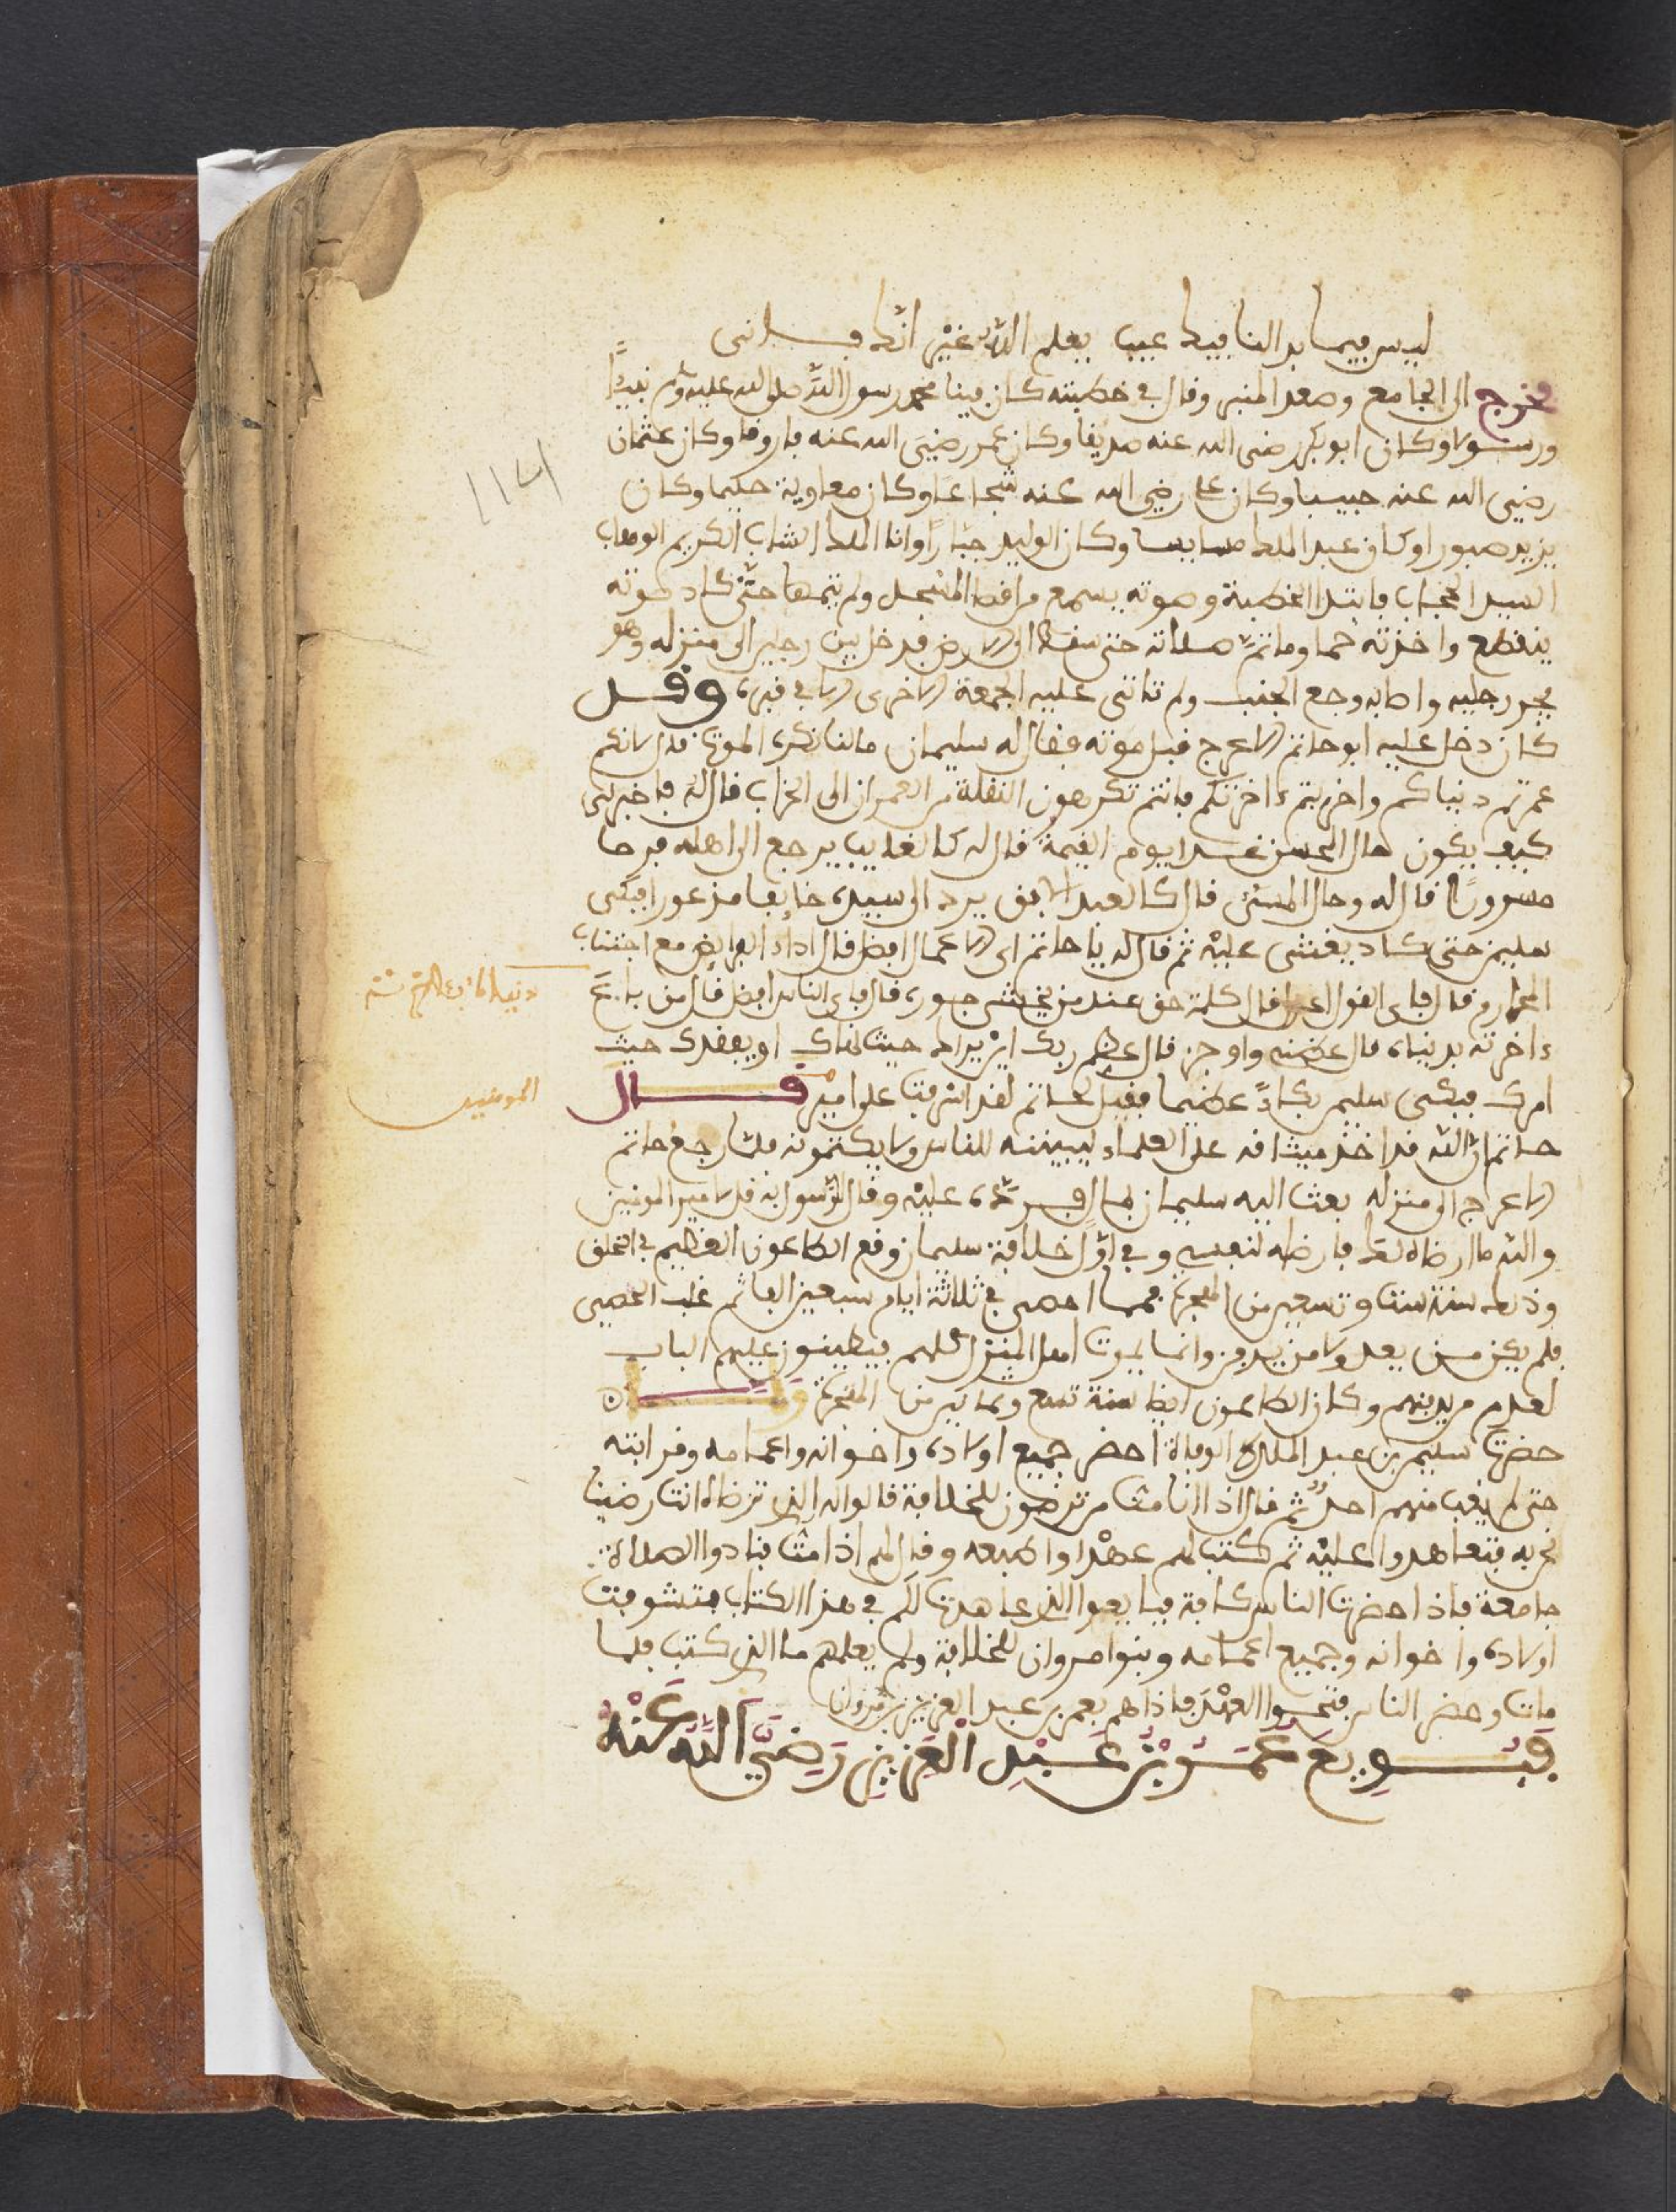 ليس فيما بدا لنا فيك عيب يعلم الله غير انك فانى
فخرج الى الجامع وصعد المنبر وقال في خطبته كان فينا محمد رسول الله صلى الله عليه وسلم نبيا
ورسولا وكان ابو بكر رضى الله عنه صديقا وكان عمر رضي الله عنه فاروقا وكان عثمان
رضي الله عنه حبيبا وكان علي رضي الله عنه شجاعا وكان معاوية حكيما وكان
يزيد صبورا وكان عبد الملك سايسا وكان الوليد جبارا وانا الملك الشاب الكريم الوهاب
السيد الحجاب فابتدا الخطبة وصوته يسمع من اقصا المسجد ولم يتمها حتى كاد صوته
ينقطع واخذته حما وما تم صلاته حتى سقط الى الارض فدخل بين رجلين الى منزله وهو
يجر رجليه واصابه وجع الجنب ولم تاتى عليه الجمعة الاخرى الا في قبره وقد
كان دخل عليه ابو حاتم الاعرج قبل موته فقال له سليمان ما لنا نكره الموت قال لانكم
عمرتم دنياكم واخربتم ءاخرتكم فانتم تكرهون النقلة من العمران الى الخراب قال له فاخبرنى
كيف يكون حال المحسن غدا يوم القيمة قال له كالغايب يرجع الى اهله فرحا
مسرورا قال له وحال المسئ قال كالعبد الابق يرد الى سيده خايفا مذعورا فبكى
سليمن حتى كاد يغشى عليه ثم قال له يا حاتم اى الاعمال افضل قال اداء الفرايض مع اجتناب
المحارم قال فاى القول اعدل قال كلمة حق عند من يخشى جوره قال فاى الناس افضل قال من باع
ءاخرته بدنياه قال عظنى واوجز قال عظم ربك ان يراك حيث نهاك او يفقدك حيث
دنياه
امرك فبكى سليمن بكاء عظيما فقيل لحاتم لقد اشرفت على امير قال
المومنين
حاتم ان الله قد اخذ ميثاقه على العلماء ليبيننه للناس ولا يكتمونه فلما رجع حاتم
الاعرج الى منزله بعث اليه سليمان بمال فرده عليه وقال للرسول به قل لامير المومنين
والله ما ارضاه لك فارضاه لنفسي وفي اول خلافة سليمان وقع الطاعون العظيم في الخلق
وذلك سنة ست وتسعين من الهجرة فمما احصى في ثلاثة ايام سبعين الفا ثم غلب المحصى
فلم يكن من يعد ولا من يدفن وانما يموت اهل المنزل كلهم فيطينون عليهم الباب
لعدم من يدفنهم وكان الطاعون ايضا سنة تسع وثمانين من الهجرة ولما ان
حضرت سليمن بن عبد الملك الوفاة احضر جميع اولاده واخوانه واعمامه وقرابته
حتى لم يغب منهم احد ثم قال اذا انا مت من ترضون للخلافة قالوا له الذى ترضاه انت رضينا
نحن به فتعاهدوا عليه ثم كتب لهم عهدا وطبعه وقال لهم اذا مت فنادوا الصلاة
جامعة فاذا حضرت الناس كافة فبايعوا الذى عاهدت لكم في هذا الكتاب فتشوفت
اولاده واخوانه وجميع اعمامه وبنوا مروان للخلافة ولم يعلمهم ما الذى كتب فلما
مات وحضر الناس فتحوا العهد فاذا هم بعمر بن عبد العزيز بن مروان
فبويع عمر بن عبد العزيز رضي الله عنه